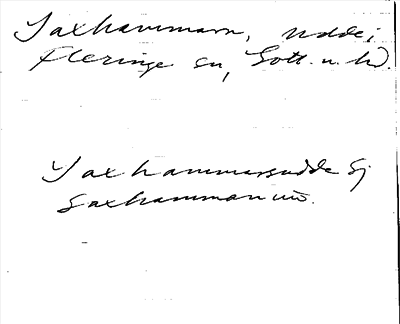 Saxhammarn, udde i
Fleringe sn, Gott. n. hd.
Saxhammarsudde Sj
Saxhammaren